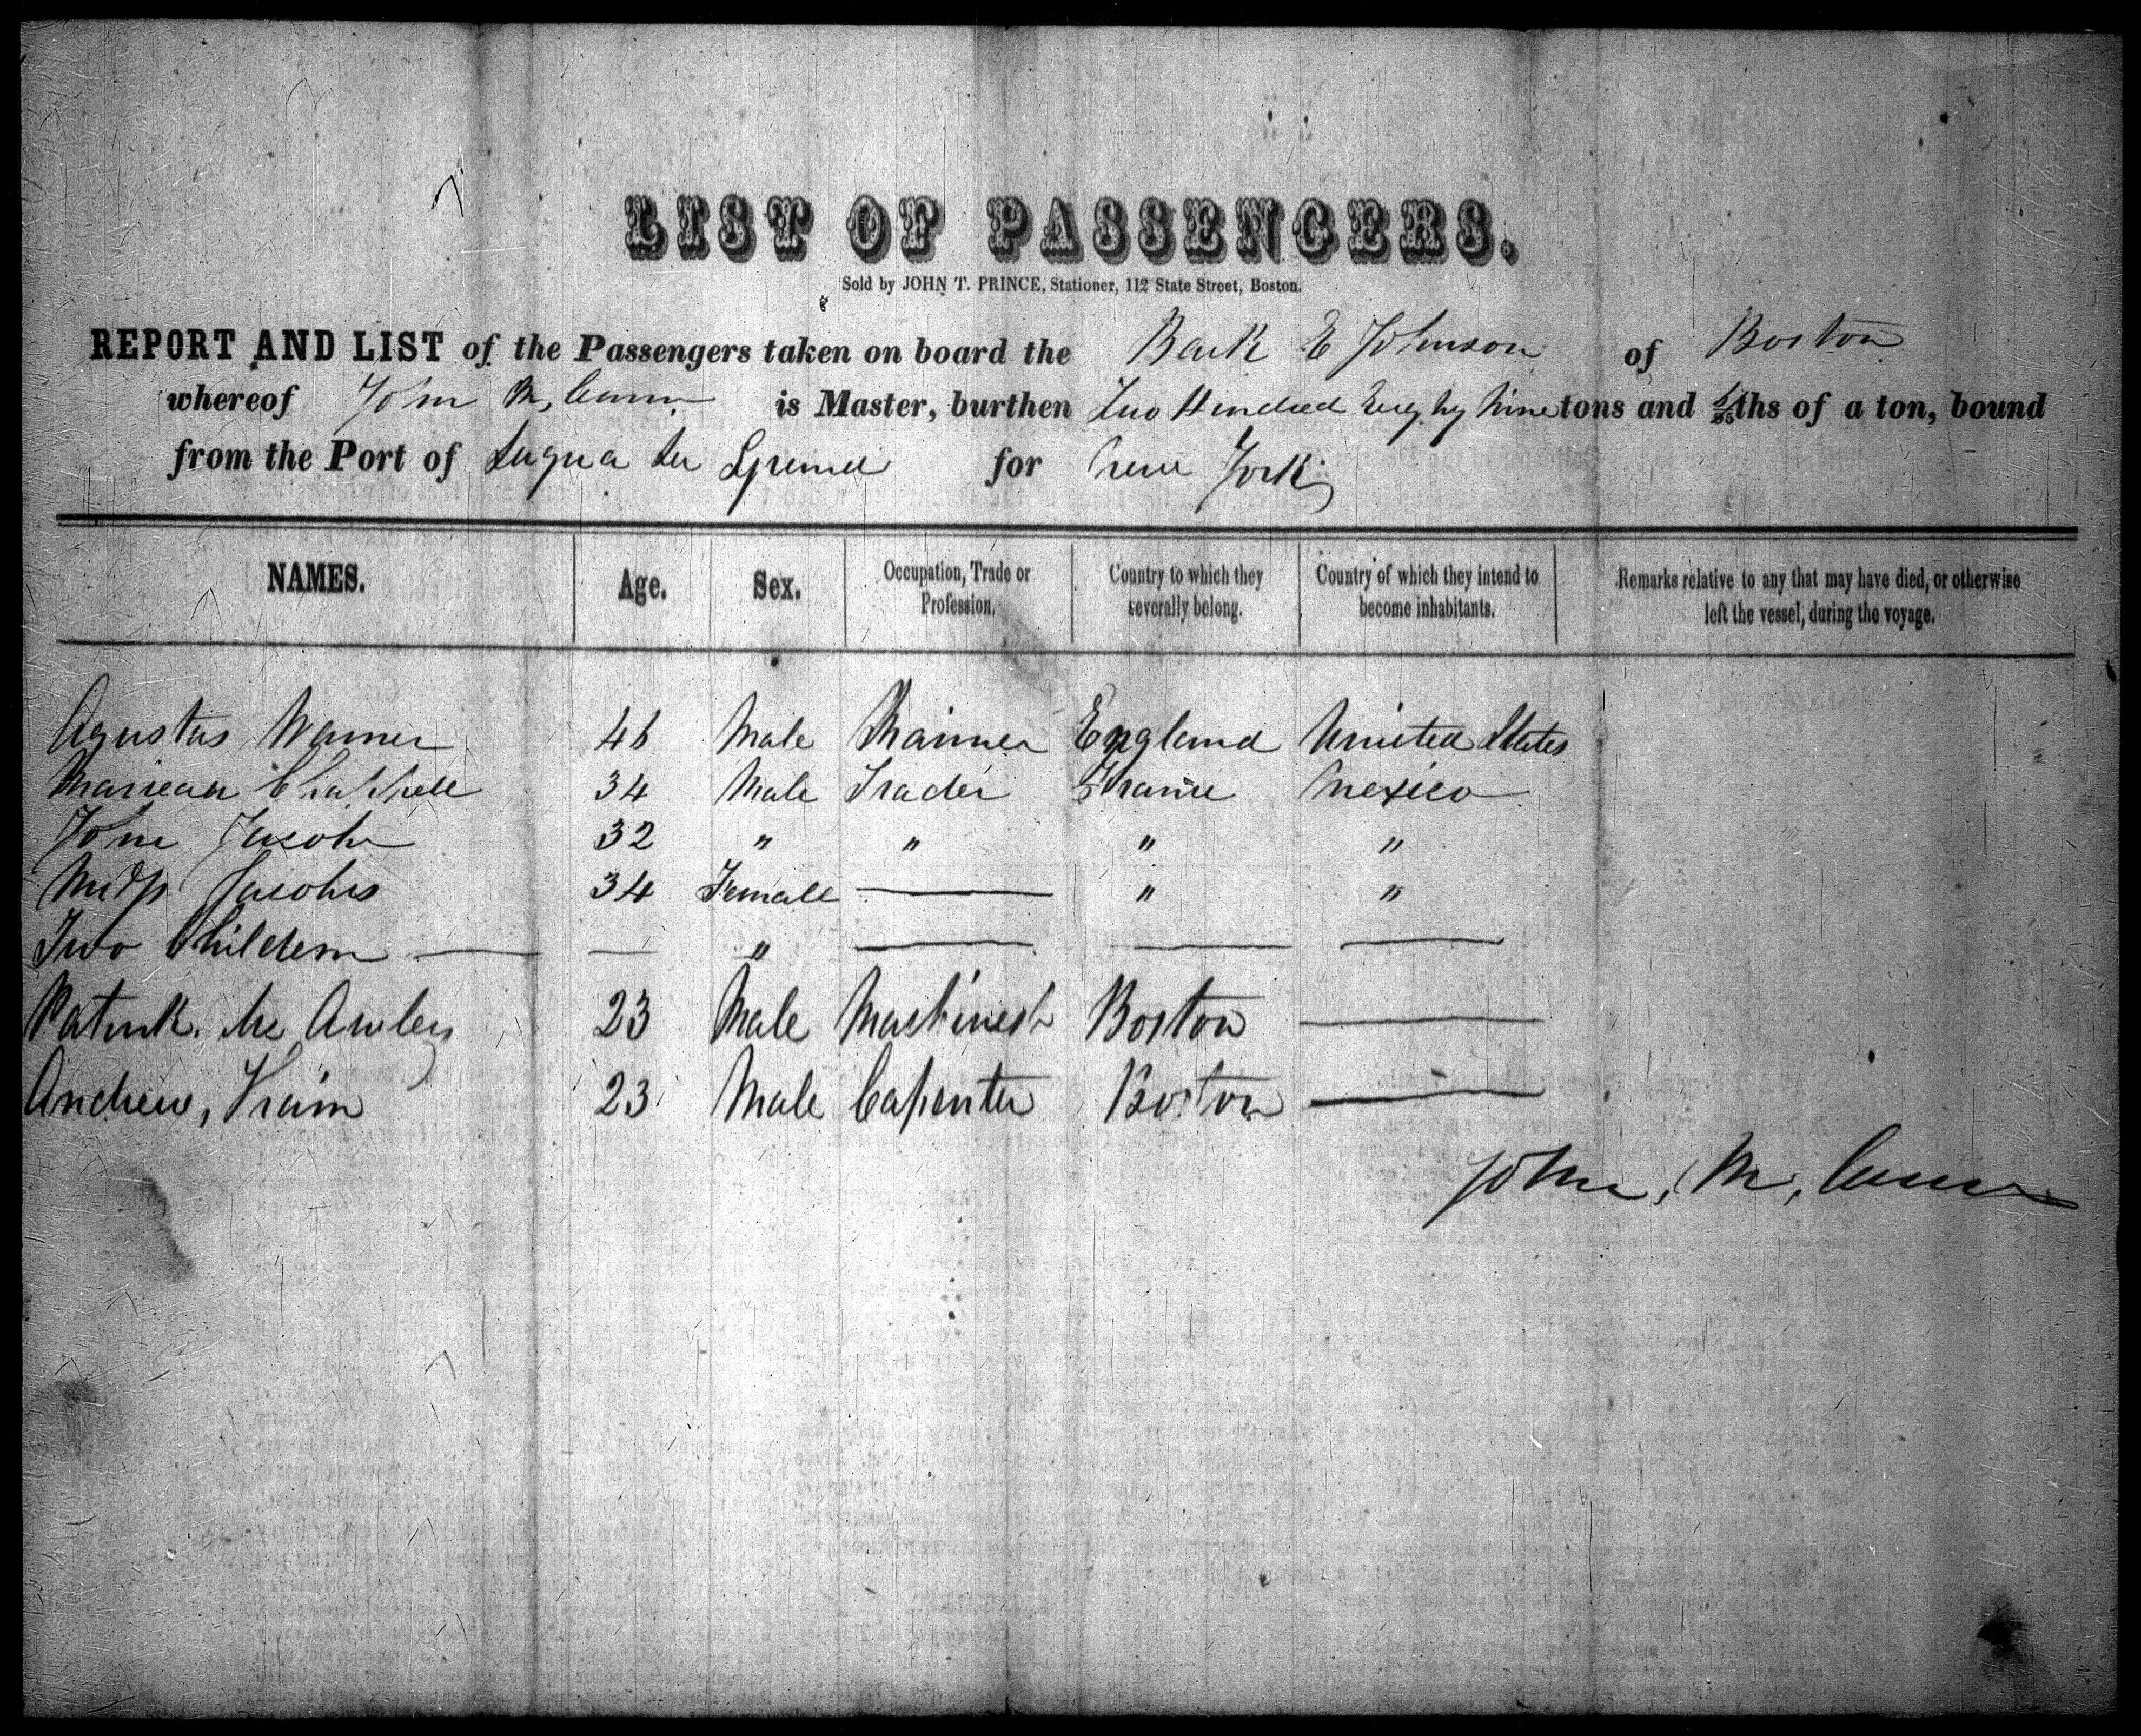 LIST OF PASSENGERS.
Sold by JOHN T. PRINCE, Stationer, 112 State Street, Boston.
REPORT AND LIST of the Passengers taken on board the Bark E Johnson of Boston
whereof John M, is Master, burthen Two Hundred Eighty Nine tons and ths of a ton, bound
from the Port of Lagua for New York
NAMES. Age. Sex. Occupation, Trade or Profession. Country to which they severally belong. Country of which they intend to become inhabitants. Remarks relative to any that may have died, or otherwise left the vessel, during the voyage.
Agustus Warner 46 Male England United States
Chappell 34 Male Trader France Mexico
John Jacobs 32 " " " "
Jacobs 34 Female — " "
Two Children — — " — — —
Patrick Mc Awley 23 Male Machinest Boston —
Andrew, 23 Male Capenter Boston —
John, M,